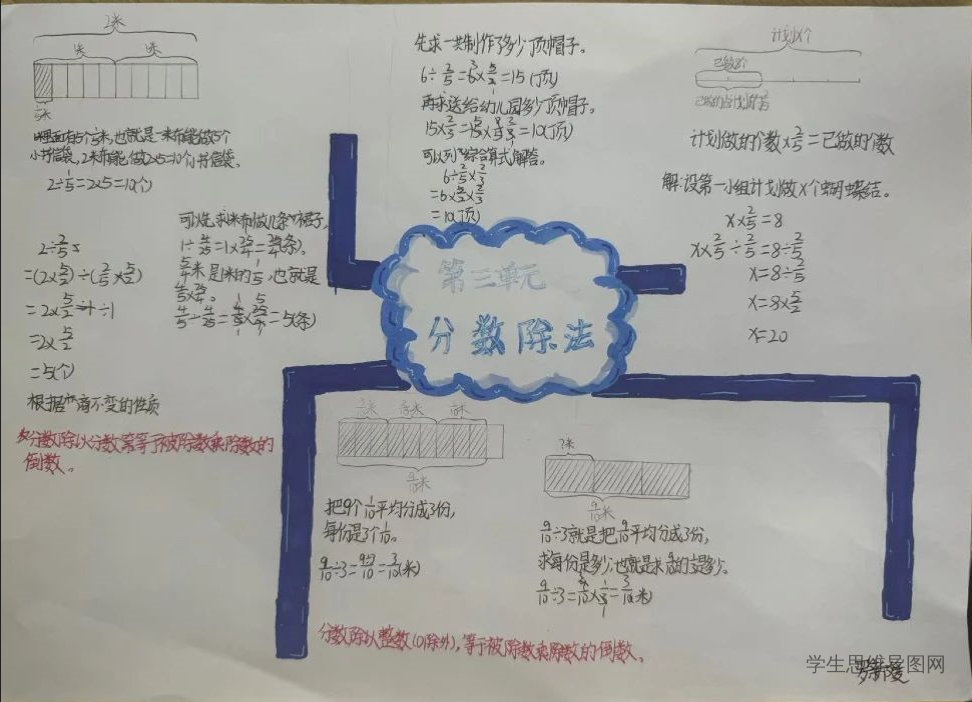 2米
1米 1米
1/5米
2米布能做2×5=10个小书信袋。
2÷1/5=2×5=10(个)
2÷2/5
=(2×5/2)÷(2/5×5/2)
=2×5/2÷1
=2×5/2
=5(个)
根据商不变的性质
分数除以分数等于被除数乘除数的
倒数。
可以先求1米布做几条小裙子,
1÷4/25=1×25/4=25/4(条),
4/5米是1米的4/5,也就是
4/5÷4/25=4/5×25/4=5(条)
先求一共制作了多少顶帽子。
6÷2/5=6×5/2=15(顶)
再求送给幼儿园多少顶帽子。
15×2/3=10(顶)
可以列综合算式解答。
6÷2/5×2/3
=6×5/2×2/3
=10(顶)
计划x个
已做8个
已做的占计划的2/5
计划做的个数×2/5=已做的个数
解:设第一小组计划做x个蝴蝶结。
x×2/5=8
x×2/5÷2/5=8÷2/5
x=8÷2/5
x=8×5/2
x=20
第三单元
分数除法
9/10米
把9个1/10平均分成3份,
每份是3个1/10。
9/10÷3=9÷3/10=3/10(米)
?米
9/10米
9/10÷3就是把9/10平均分成3份,
求每份是多少,也就是求9/10的1/3是多少。
9/10÷3=9/10×1/3=3/10(米)
分数除以整数(0除外),等于被除数乘除数的倒数。
学生思维导图网